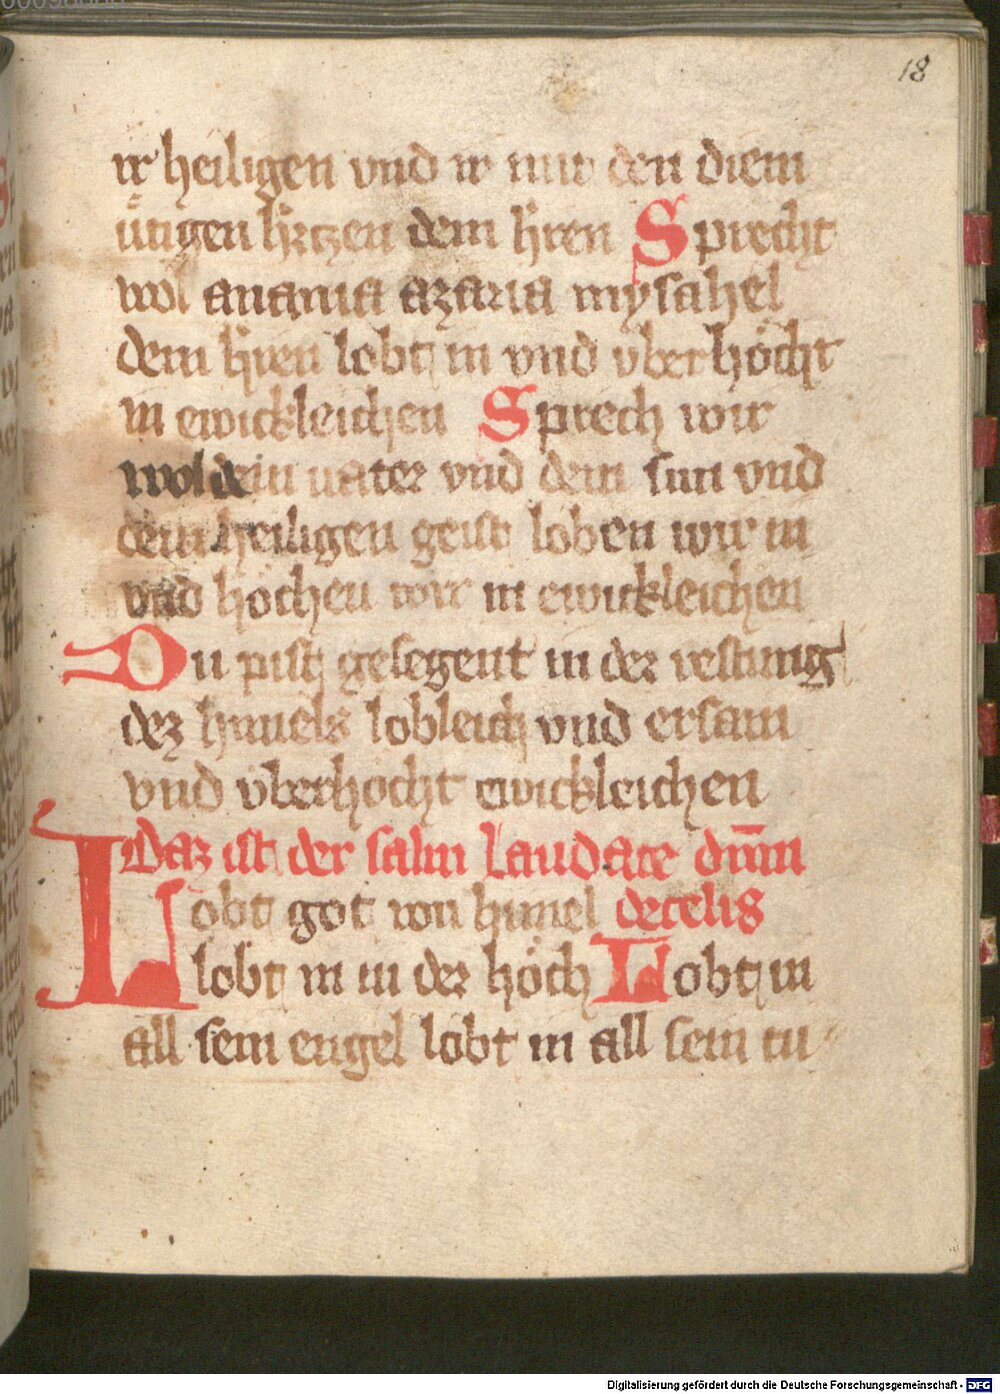 18
ir heiligen vnd ir mit den diem
ütigen hertzen dem hren Sprecht
wol anania azaria mysahel
dem hren lobt in vnd vber höcht
in ewickleichen Sprech wir
wol dein uater vnd dem sun vnd
dem heiligen geist loben wir in
vnd höchen wir in ewickleichen
Du pist gesegent in der vestung
dez himels lobleich vnd ersam
vnd vberhöcht ewickleichen
Daz ist der salm Laudate dnm
Lobt got von himel decelis
lobt in in der höch Lobt in
all sein engel lobt in all sein tu
Digitalisierung gefördert durch die Deutsche Forschungsgemeinschaft - DFG